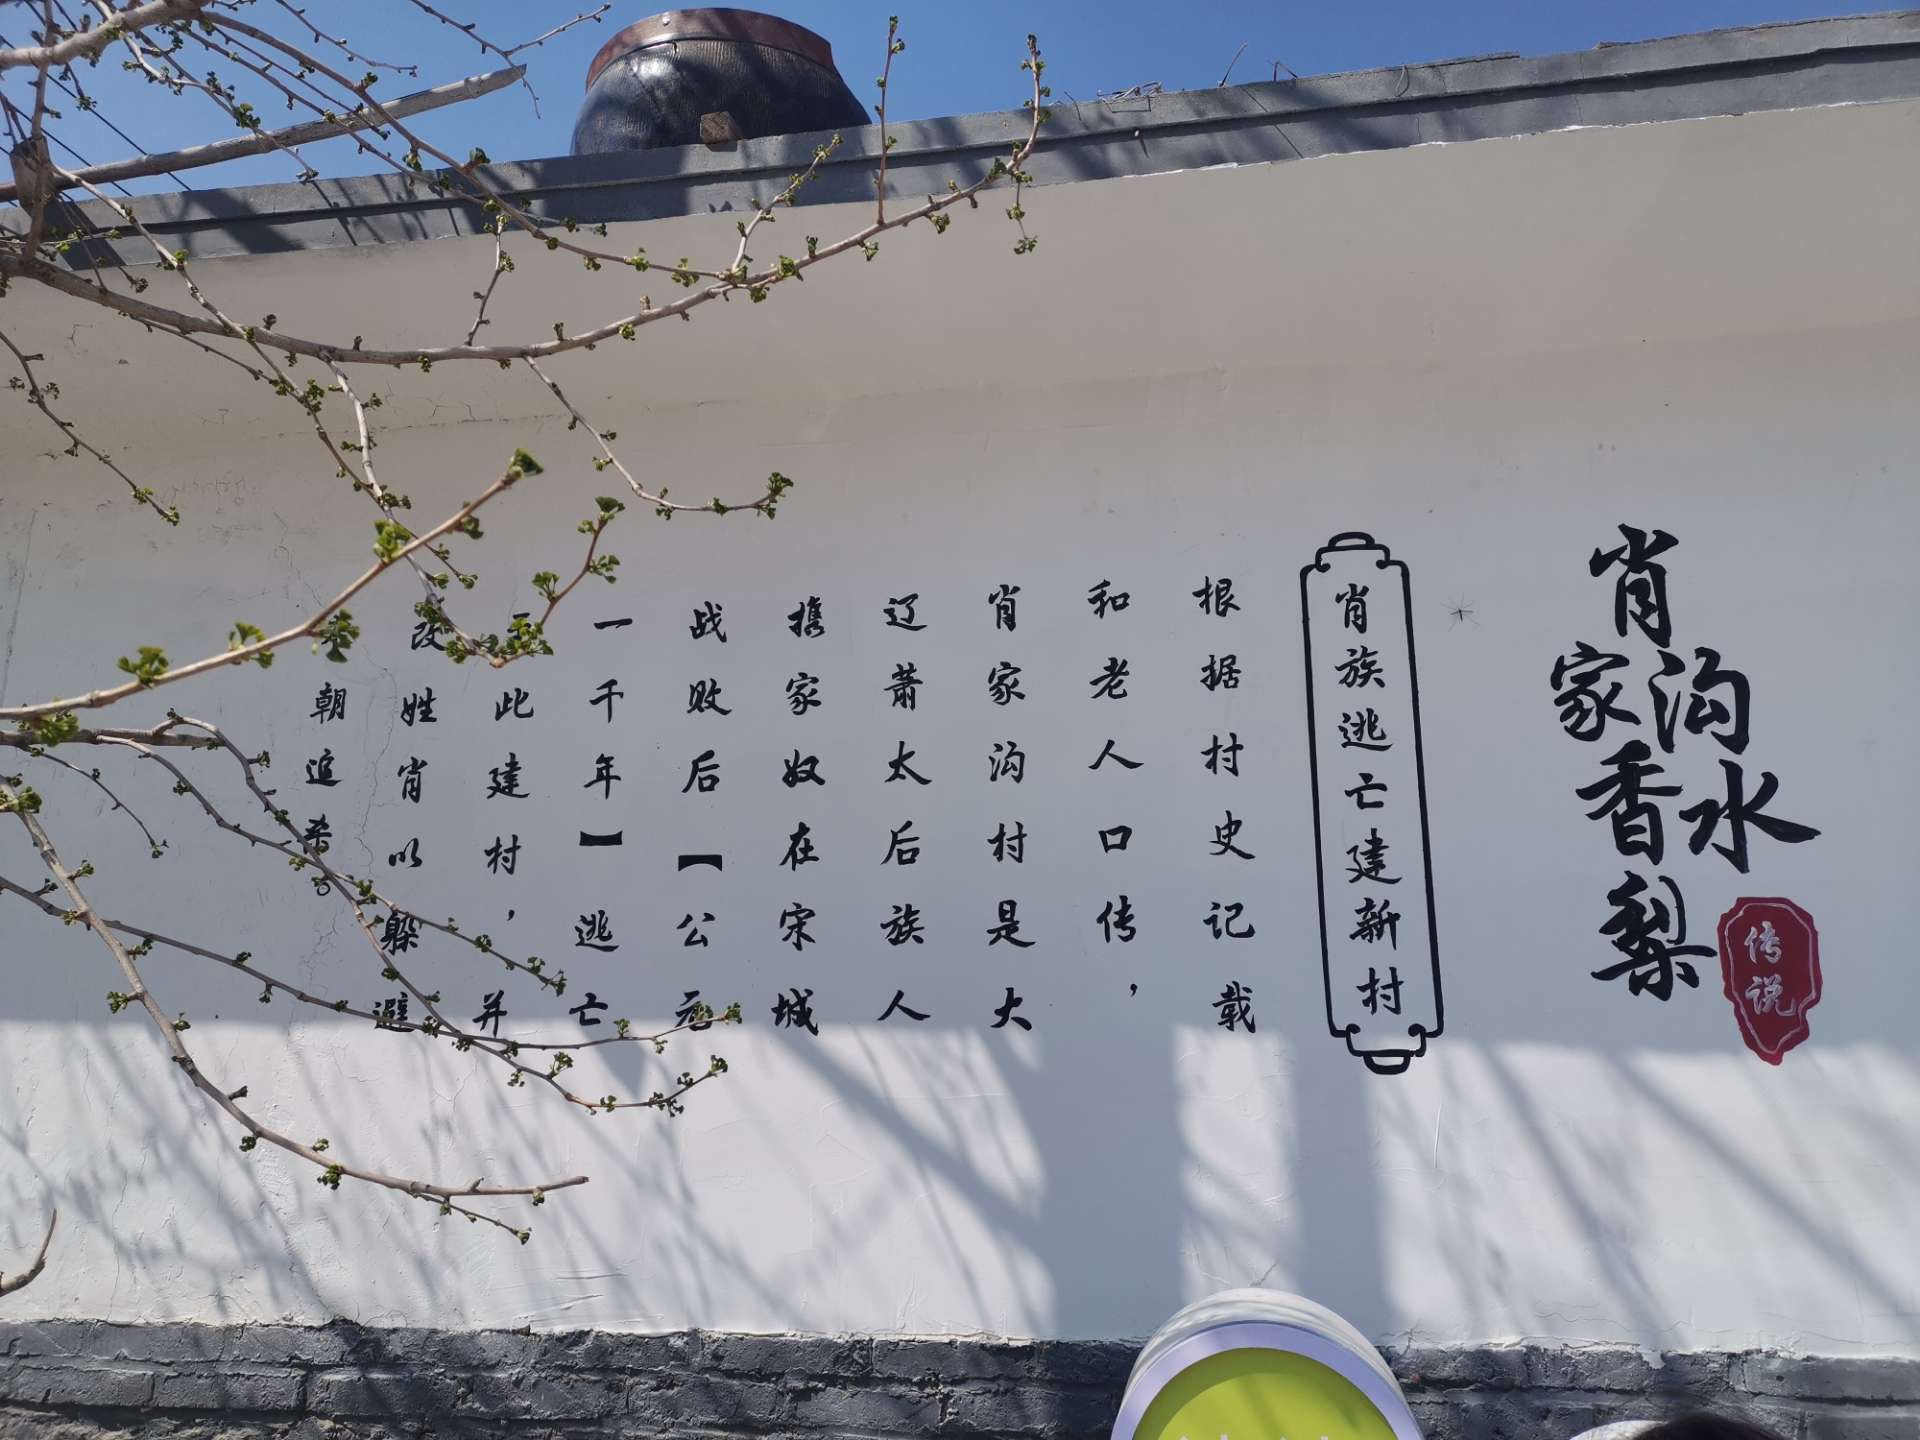 肖家沟香水梨
传说
肖族逃亡建新村
根据村史记载
和老人口传，
肖家沟村是大
辽萧太后族人
携家奴在宋城
战败后【公元
一千年】逃亡
于此建村，并
改姓肖以躲避
朝追杀。